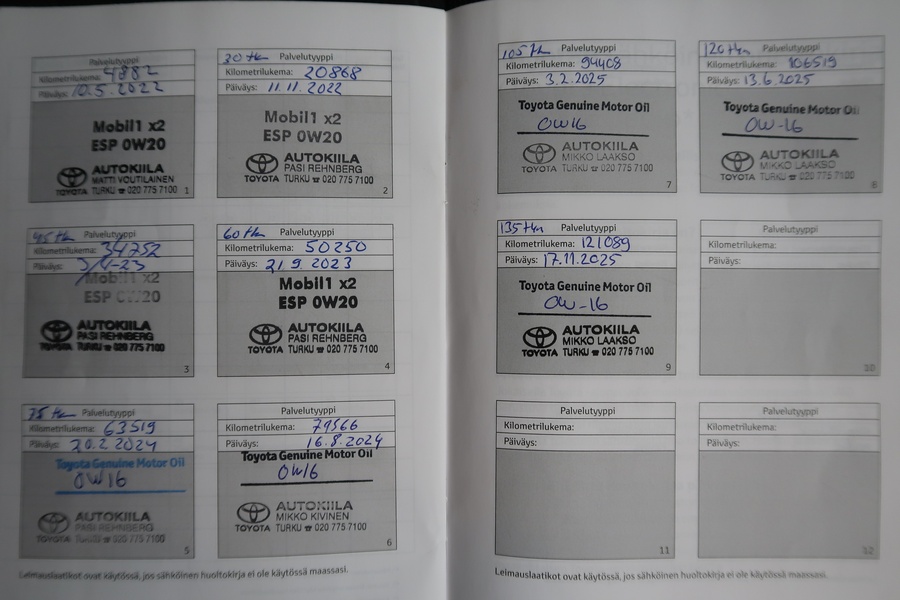 Palvelutyyppi
Kilometrilukema: 4882
Päiväys: 10.5.2022
Mobil1 x2
ESP 0W20
AUTOKIILA
MATTI VOUTILAINEN
TOYOTA TURKU ☎ 020 775 7100
1
30 tkm Palvelutyyppi
Kilometrilukema: 20868
Päiväys: 11.11.2022
Mobil1 x2
ESP 0W20
AUTOKIILA
PASI REHNBERG
TOYOTA TURKU ☎ 020 775 7100
2
45 tkm Palvelutyyppi
Kilometrilukema: 34752
Päiväys:
Mobil1 x2
ESP 0W20
AUTOKIILA
PASI REHNBERG
TOYOTA TURKU ☎ 020 775 7100
3
60 tkm Palvelutyyppi
Kilometrilukema: 50250
Päiväys: 21 9. 2023
Mobil1 x2
ESP 0W20
AUTOKIILA
PASI REHNBERG
TOYOTA TURKU ☎ 020 775 7100
4
75 tkm Palvelutyyppi
Kilometrilukema: 63519
Päiväys: 20.2 2024
Toyota Genuine Motor Oil
0W16
AUTOKIILA
PASI REHNBERG
TOYOTA TURKU ☎ 020 775 7100
5
Palvelutyyppi
Kilometrilukema: 79566
Päiväys: 16.8.2024
Toyota Genuine Motor Oil
0W16
AUTOKIILA
MIKKO KIVINEN
TOYOTA TURKU ☎ 020 775 7100
6
Leimauslaatikot ovat käytössä, jos sähköinen huoltokirja ei ole käytössä maassasi.
105 tkm Palvelutyyppi
Kilometrilukema: 94408
Päiväys: 3.2.2025
Toyota Genuine Motor Oil
0W16
AUTOKIILA
MIKKO LAAKSO
TOYOTA TURKU ☎ 020 775 7100
7
120 tkm Palvelutyyppi
Kilometrilukema: 106519
Päiväys: 13.6.2025
Toyota Genuine Motor Oil
0W-16
AUTOKIILA
MIKKO LAAKSO
TOYOTA TURKU ☎ 020 775 7100
8
135 tkm Palvelutyyppi
Kilometrilukema: 121089
Päiväys: 17.11.2025
Toyota Genuine Motor Oil
0W-16
AUTOKIILA
MIKKO LAAKSO
TOYOTA TURKU ☎ 020 775 7100
9
Palvelutyyppi
Kilometrilukema:
Päiväys:
10
Palvelutyyppi
Kilometrilukema:
Päiväys:
11
Palvelutyyppi
Kilometrilukema:
Päiväys:
12
Leimauslaatikot ovat käytössä, jos sähköinen huoltokirja ei ole käytössä maassasi.